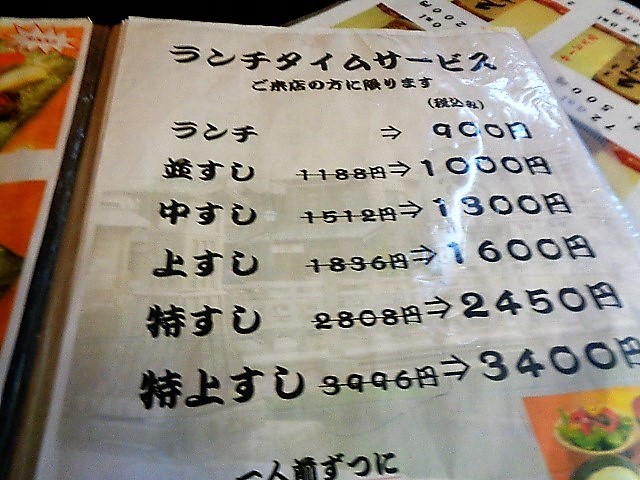 ランチタイムサービス
ご来店の方に限ります
(税込み)
ランチ ⇒ 900円
並すし 1188円⇒1000円
中すし 1512円⇒1300円
上すし 1836円⇒1600円
特すし 2808円⇒2450円
特上すし 3996円⇒3400円
一人前ずつに